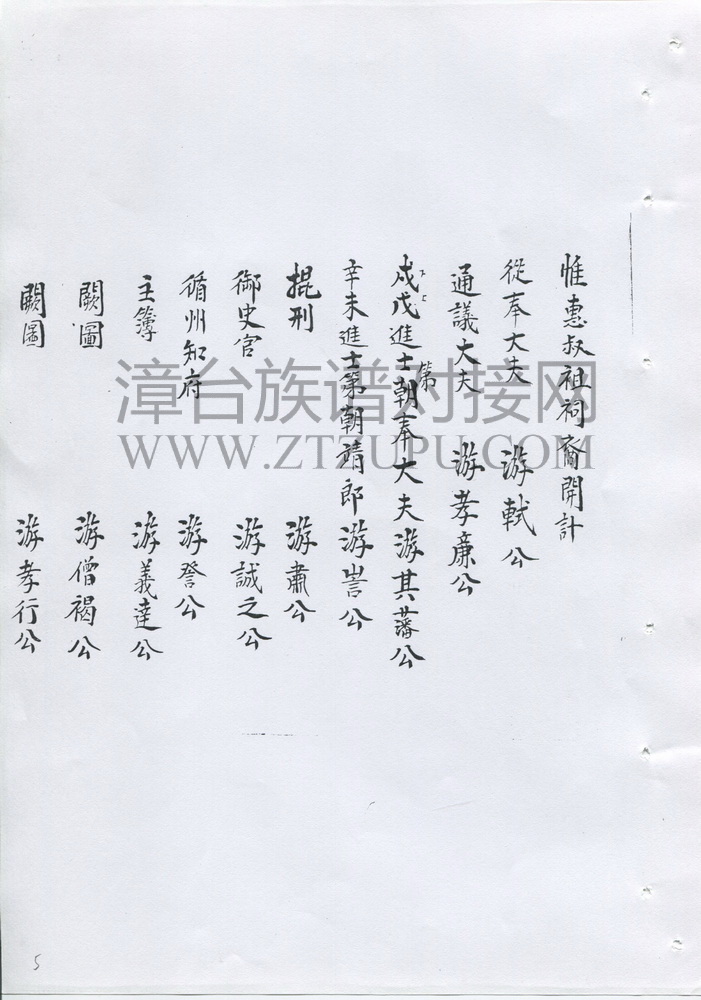 惟惠叔祖祠裔開計
從奉大夫 游軾公
通議大夫 游孝廉公
戍戊進士第朝奉大夫游其藩公
辛未進士第朝靖郎游訔公
提刑 游肅公
御史官 游誠之公
循州知府 游詧公
主簿 游義達公
闕圖 游僧褐公
闕圖 游孝行公
漳台族谱对接网
WWW.ZTZUPU.COM
5